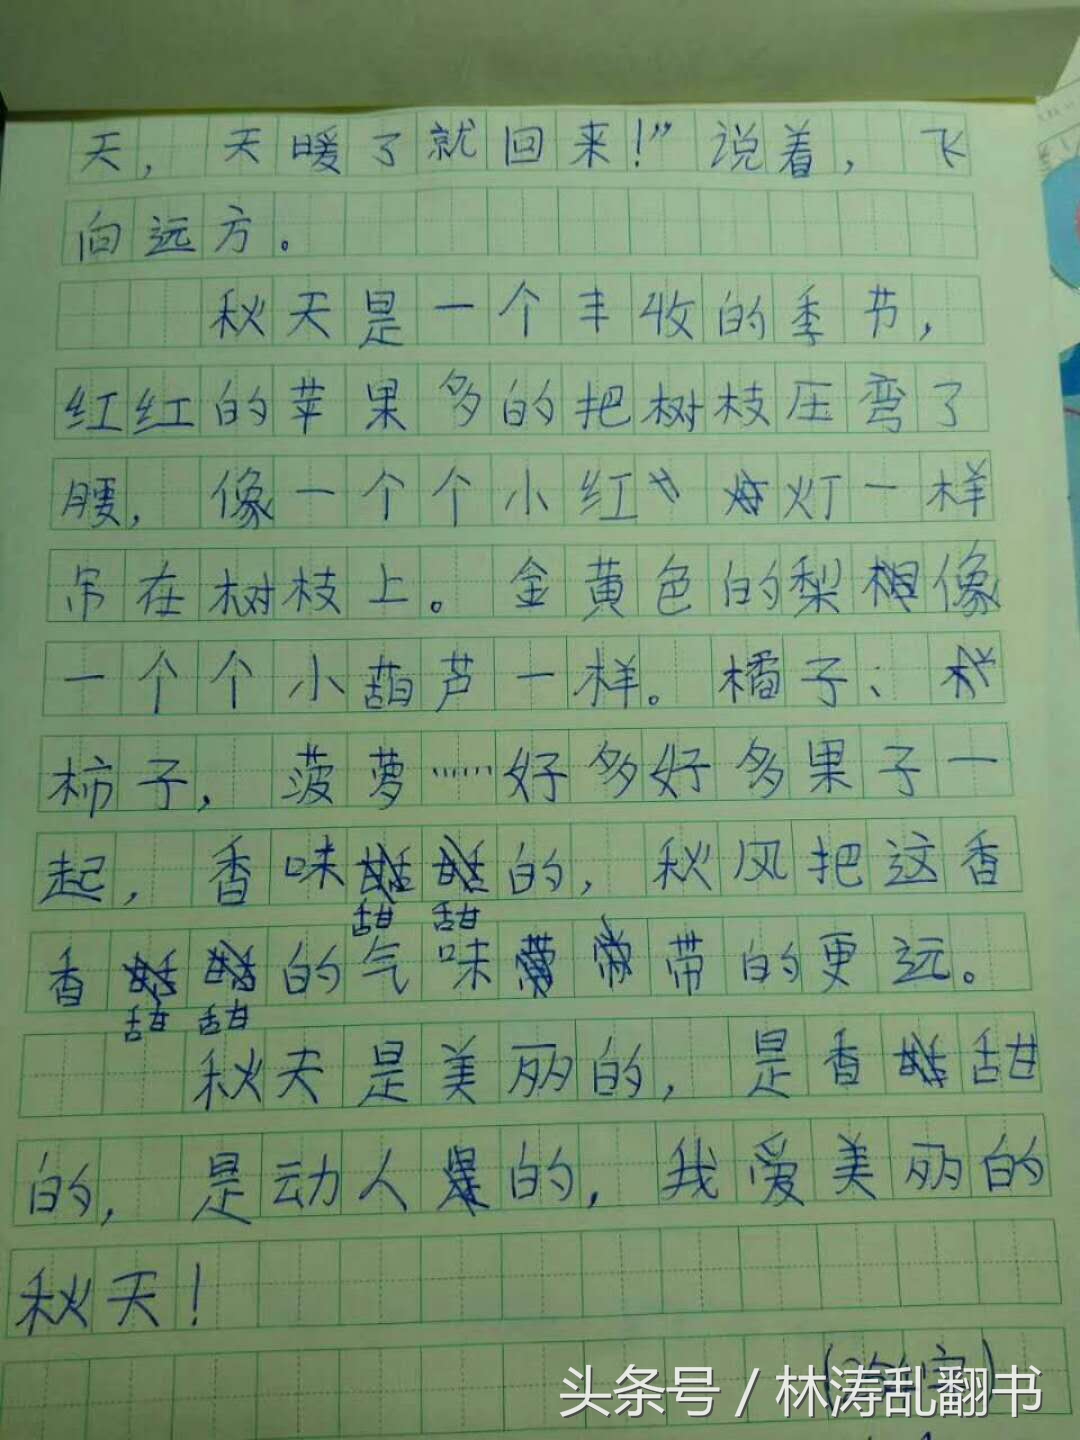 天，天暖了就回来！”说着，飞
向远方。
秋天是一个丰收的季节，
红红的苹果多的把树枝压弯了
腰，像一个个小红灯一样
吊在树枝上。金黄色的梨像
一个个小葫芦一样。橘子、
柿子，菠萝……好多好多果子一
起，香味甜甜的，秋风把这香
香甜甜的气味带的更远。
秋天是美丽的，是香甜
的，是动人的，我爱美丽的
秋天！
头条号 / 林涛乱翻书